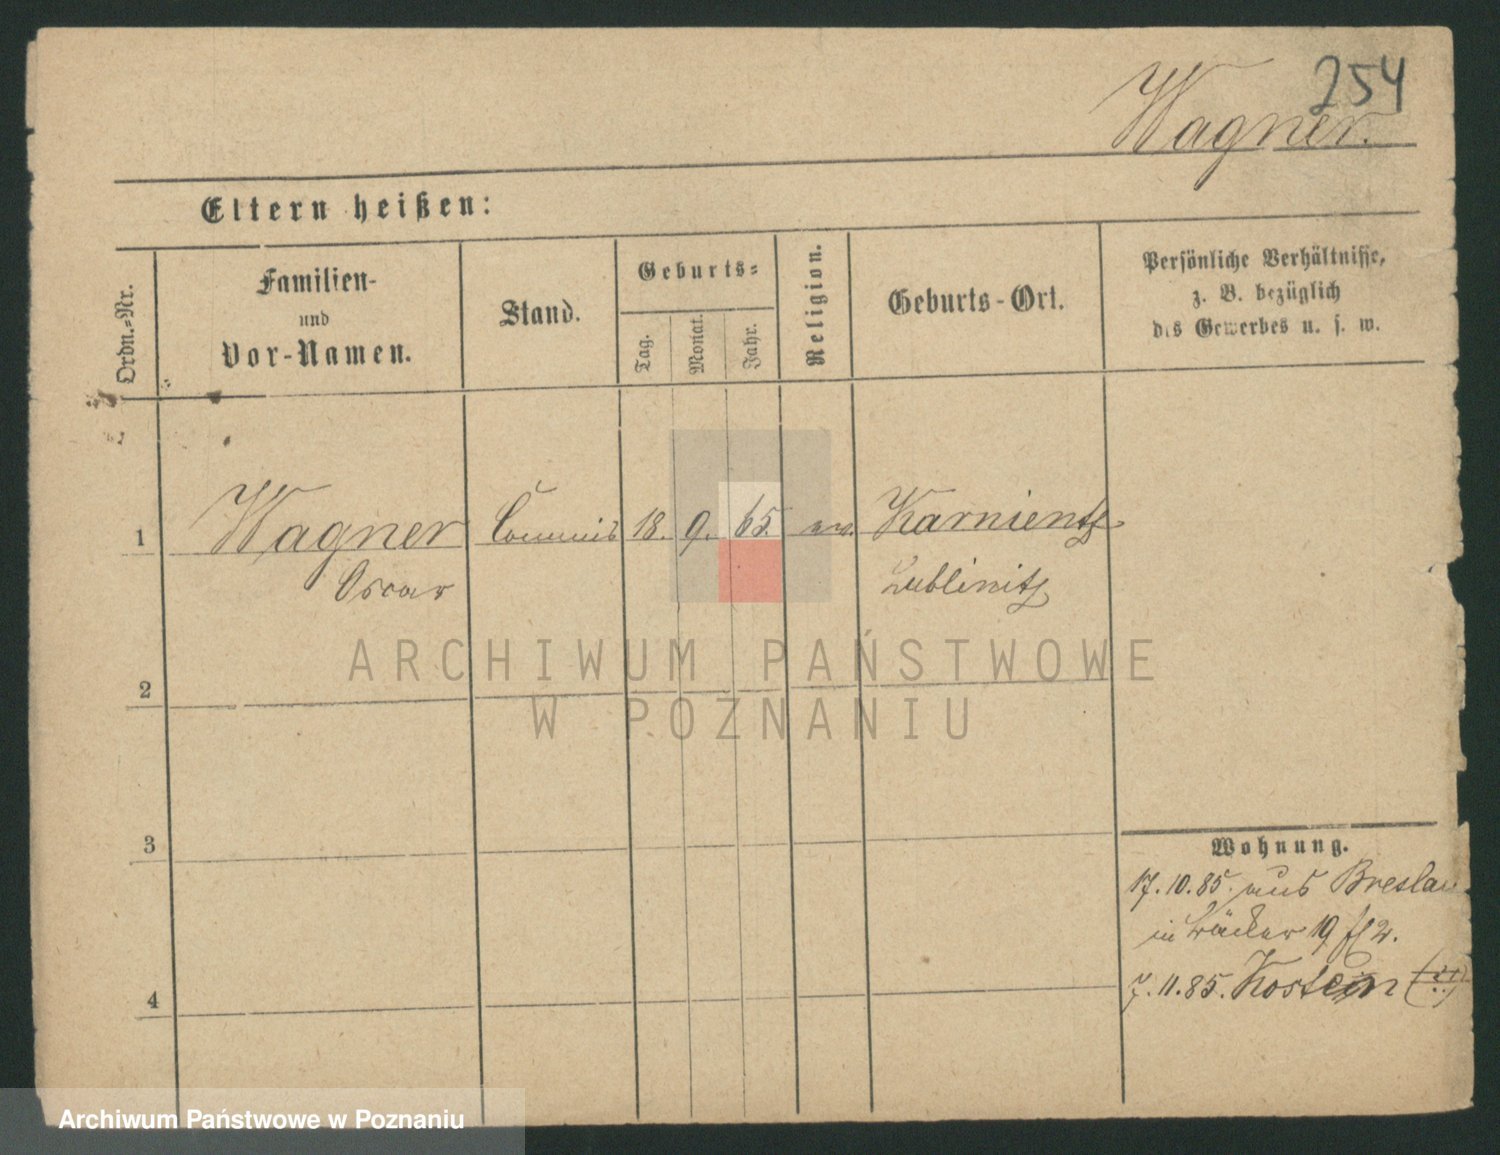 254
Wagner.
Eltern heißen:
Ordn.-Nr.
Familien-
und
Vor-Namen.
Stand.
Geburts-
Tag.
Monat.
Jahr.
Religion.
Geburts-Ort.
Persönliche Verhältnisse,
z. B. bezüglich
des Gewerbes u. s. w.
1
Wagner Commis 18. 9. 65. ev. Karnientz
Oscar Lublinitz
ARCHIWUM PAŃSTWOWE
W POZNANIU
2
3
4
Wohnung.
17.10.85. aus Breslau
in Bäcker 19
7.11.85. Kosten
Archiwum Państwowe w Poznaniu